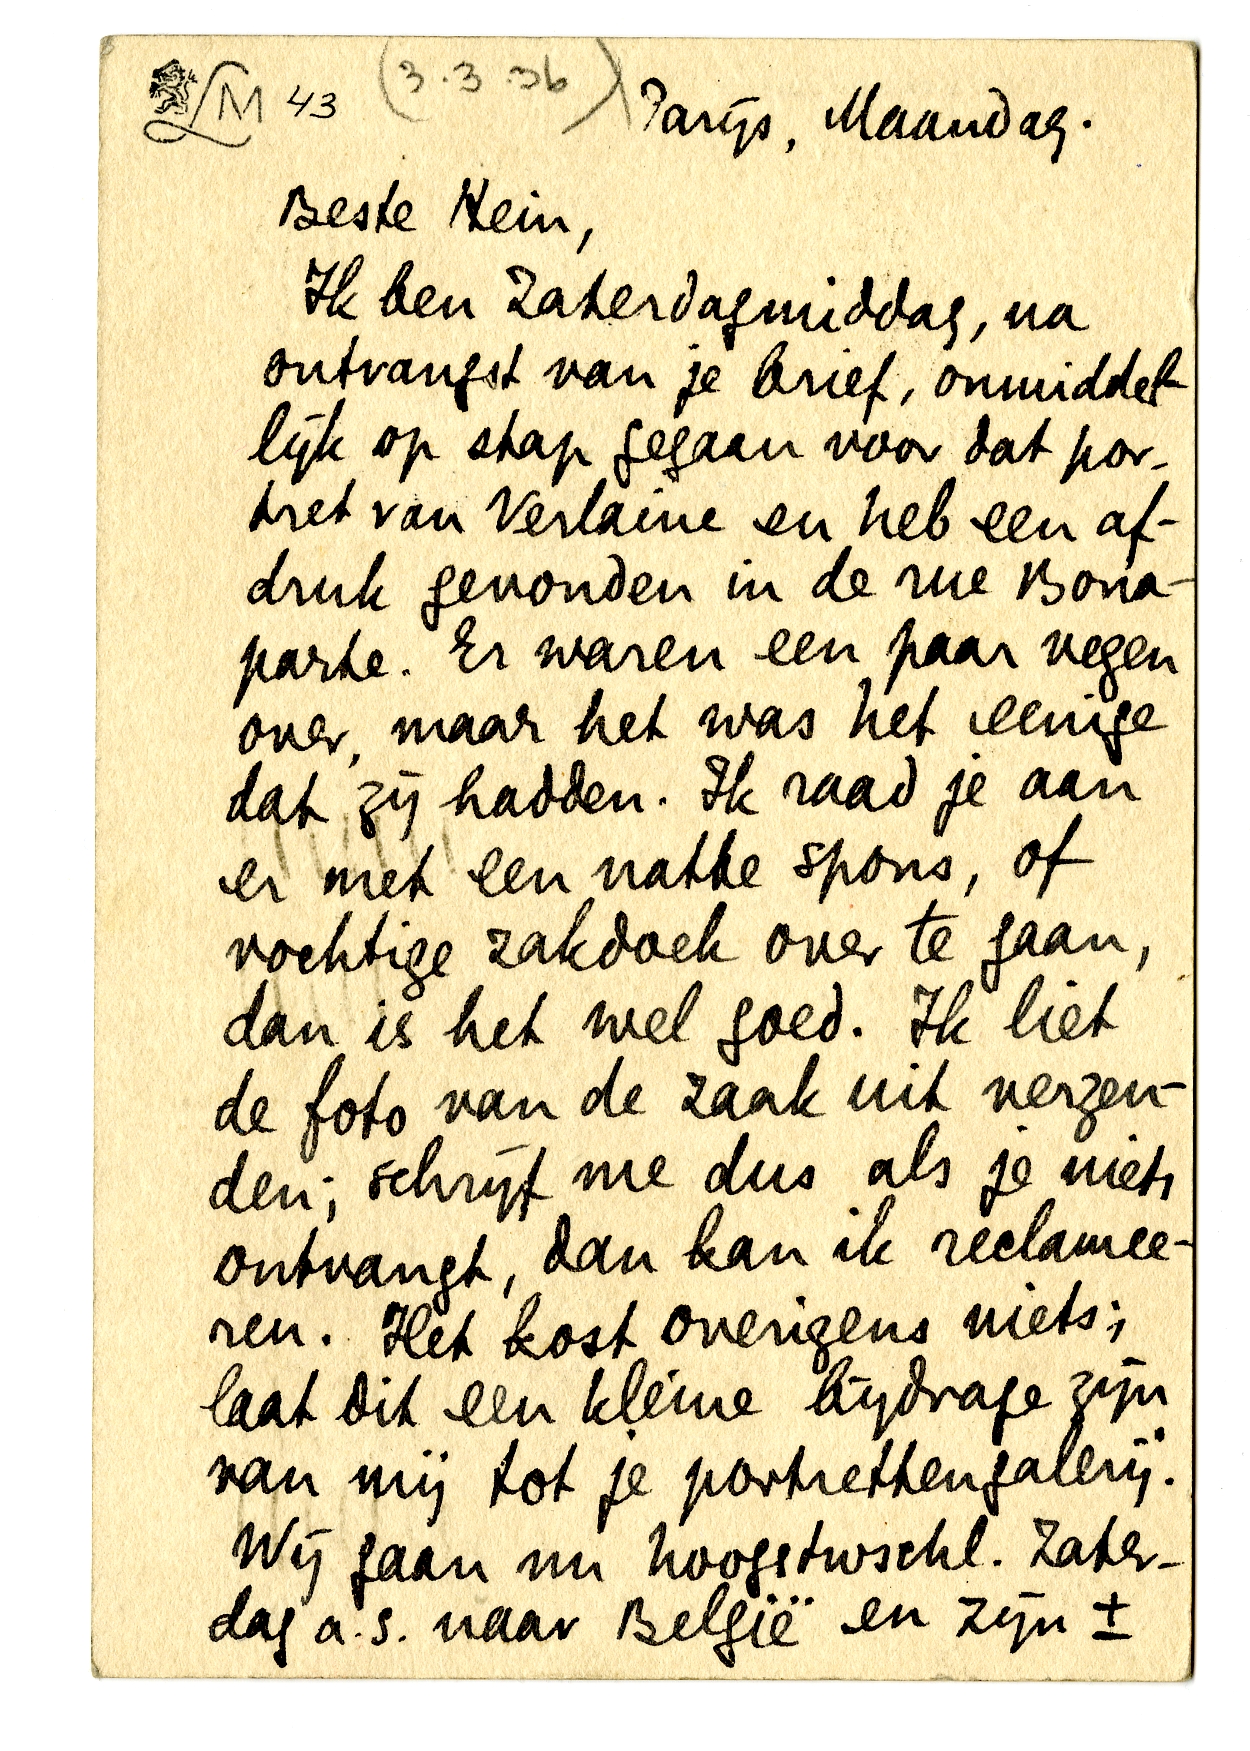 LM 43 (3.3.36) Parijs, Maandag.
Beste Hein,
Ik ben Zaterdagmiddag, na
ontvangst van je brief, onmiddel-
lijk op stap gegaan voor dat por-
tret van Verlaine en heb een af-
druk gevonden in de rue Bona-
parte. Er waren een paar vegen
over, maar het was het eenige
dat zij hadden. Ik raad je aan
er met een natte spons, of
vochtige zakdoek over te gaan,
dan is het wel goed. Ik liet
de foto van de zaak uit verzen-
den; schrijf me dus als je niets
ontvangt, dan kan ik reclamee-
ren. Het kost overigens niets;
laat dit een kleine bijdrage zijn
van mij tot je portrettengalerij.
Wij gaan nu hoogstwschl. Zater-
dag a.s. naar België en zijn ±